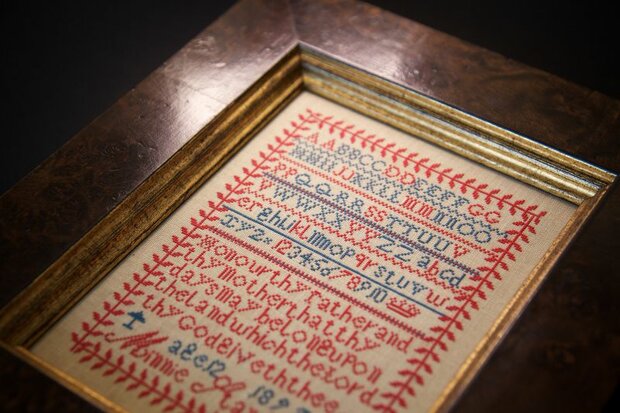 AABBCCDDEEFFGG
PPQQRRSSTTUUV
VWWXXYYZZabcd
efghijklmnopqrstuvw
xyz 12345678910
Honour thy father and
thy mother that thy
days may be long upon
the land which the Lord
thy God giveth thee
Minnie
age 12